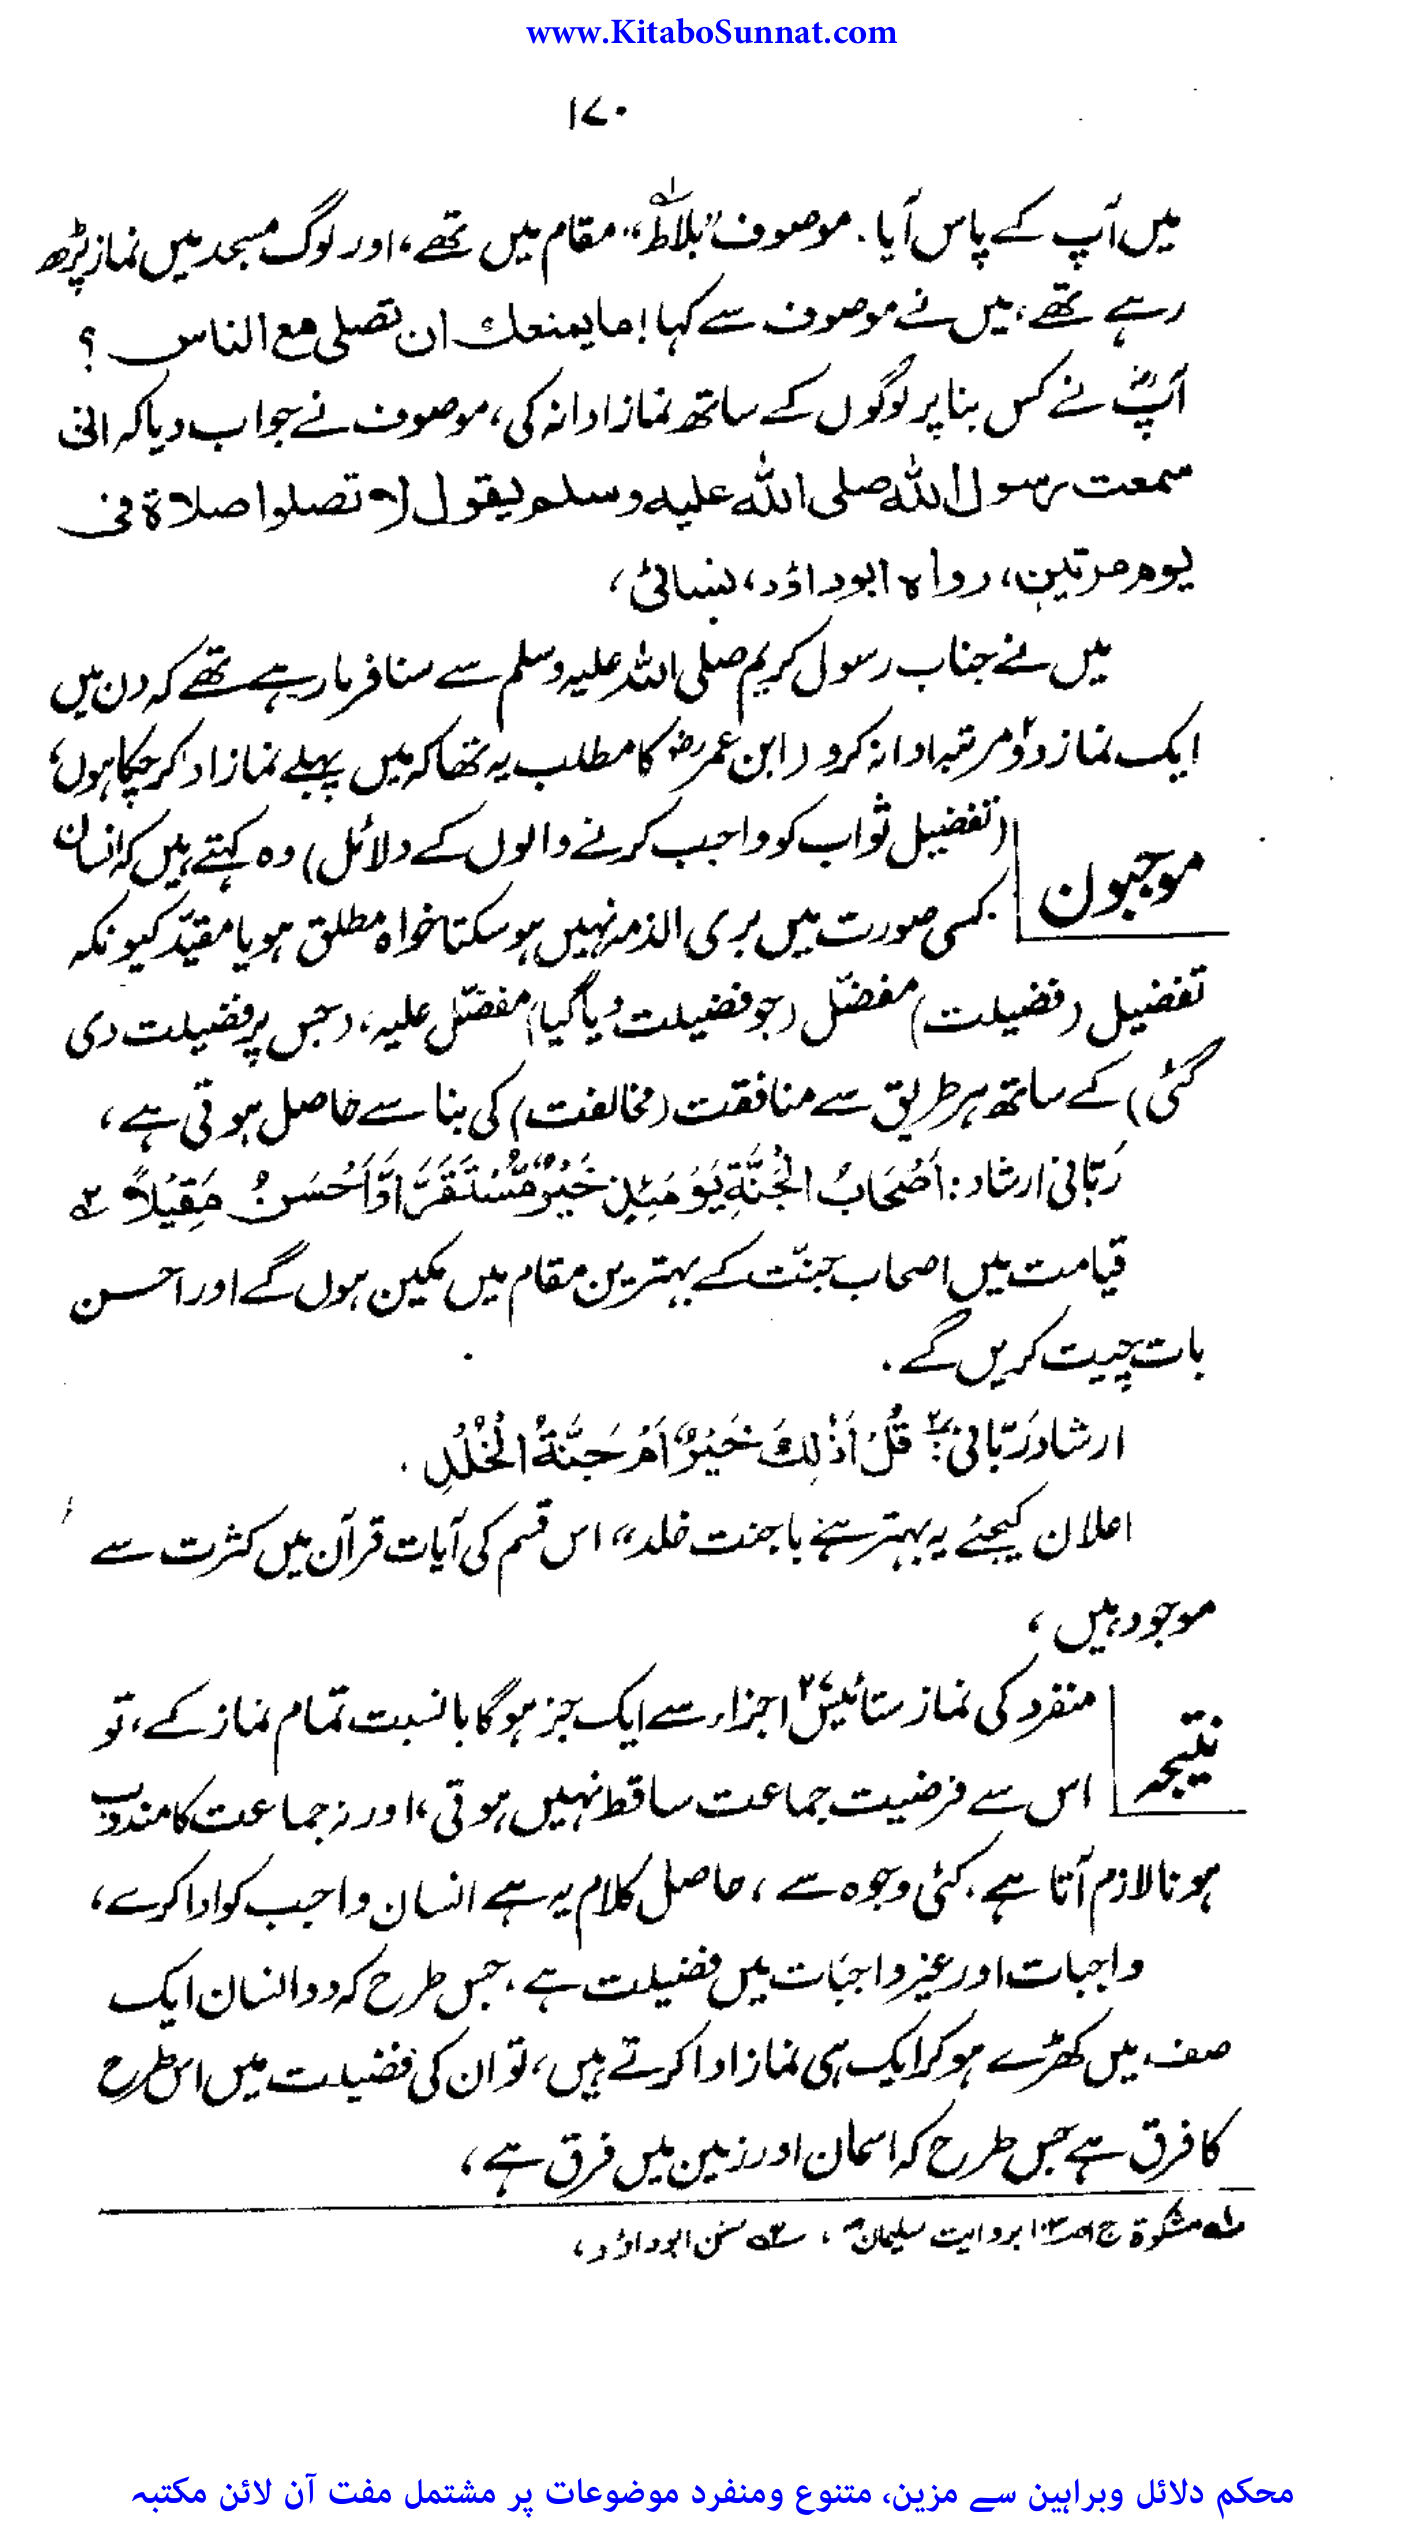 www.KitaboSunnat.com
۱۷۰
میں آپ کے پاس آیا. موصوف "بلاط" مقام میں تھے، اور لوگ مسجد میں نماز پڑھ
رہے تھے، میں نے موصوف سے کہا! ما یمنعك ان تصلی مع الناس ؟
آپؓ نے کس بنا پر لوگوں کے ساتھ نماز ادا نہ کی، موصوف نے جواب دیا کہ انی
سمعت رسول اللہ صلی اللہ علیہ وسلم یقول لا تصلوا صلاة فی
یوم مرتین، رواہ ابوداؤد، نسائی،
میں نے جناب رسول کریم صلی اللہ علیہ وسلم سے سنا فرما رہے تھے کہ دن میں
ایک نماز دو۲ مرتبہ ادا نہ کرو (ابن عمرؓ کا مطلب یہ تھا کہ میں پہلے نماز ادا کر چکا ہوں،
موجبون (تفضیل ثواب کو واجب کرنے والوں کے دلائل) وہ کہتے ہیں کہ انسان
کسی صورت میں بری الذمہ نہیں ہو سکتا خواہ مطلق ہو یا مقیّد کیونکہ
تفضیل (فضیلت) مفضّل (جو فضیلت دیا گیا) مفضّل علیہ، (جس پر فضیلت دی
گئی) کے ساتھ ہر طریق سے منافقت (مخالفت) کی بنا سے حاصل ہوتی ہے،
رَبّانی ارشاد: اَصْحَابُ الْجَنَّةِ یَوْمَئِذٍ خَیْرٌ مُّسْتَقَرًّا وَّاَحْسَنُ مَقِیْلاً ۲؎
قیامت میں اصحاب جنّت کے بہترین مقام میں مکین ہوں گے اور احسن
بات چیت کریں گے.
ارشاد رَبّانی: قُلْ اَذٰلِكَ خَیْرٌ اَمْ جَنَّةُ الْخُلْدِ .
اعلان کیجئے یہ بہتر ہے یا جنت خلد" اس قسم کی آیات قرآن میں کثرت سے
موجود ہیں،
نتیجہ منفرد کی نماز ستائیس۲۷ اجزاء سے ایک جز ہو گا بانسبت تمام نماز کے، تو
اس سے فرضیت جماعت ساقط نہیں ہوتی، اور نہ جماعت کا مندوب
ہونا لازم آتا ہے. کئی وجوہ سے، حاصل کلام یہ ہے انسان واجب کو ادا کرے،
واجبات اور غیر واجبات میں فضیلت ہے، جس طرح کہ دو انسان ایک
صف میں کھڑے ہو کر ایک ہی نماز ادا کرتے ہیں، تو ان کی فضیلت میں اس طرح
کا فرق ہے جس طرح کہ اسمان اور زمین میں فرق ہے،
۱؎ مشکوة ج۱ ص۱۰۳ بروایت سلیمان، ۲؎ سنن ابوداؤد،
محکم دلائل وبراہین سے مزین، متنوع ومنفرد موضوعات پر مشتمل مفت آن لائن مکتبہ